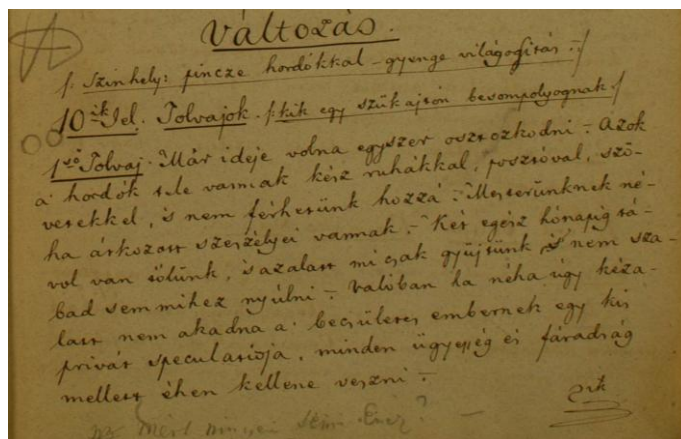 Változás.
/: Szinhely: pincze hordókkal – gyenge világositás :/
10ik Jel. Tolvajok. /: kik egy szük ajtón besompolyognak :/
1ső Tolvaj. Már ideje volna egyszer osztozkodni – Azok
a' hordók tele vannak kész ruhákkal, posztóval, szö-
vetekkel, is nem férhetünk hozzá – Mesterünknek né-
ha átkozott szeszélyei vannak – Két egész hónapig tá-
vol van tölünk, s azalatt mi csak gyüjtünk is nem sza-
bad semmihez nyúlni – Valóban ha néha úgy kéza-
latt nem akadna a' becsületes embernek egy kis
privát speculatiója, minden ügyesség és fáradság
mellett éhen kellene veszni –